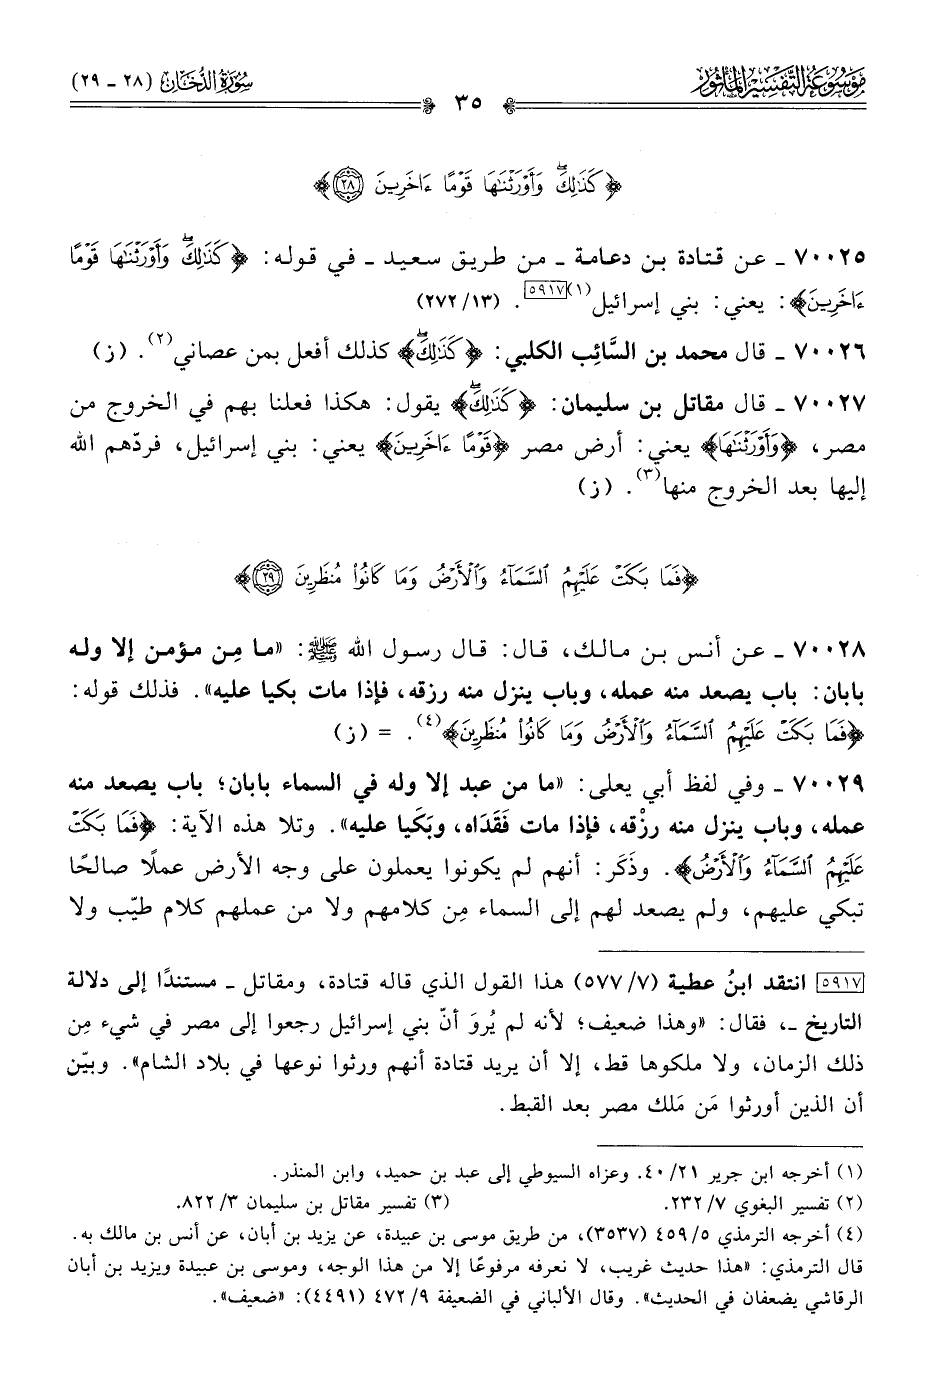 مَوْسُوعَة التَّفْسِيرِ المَأثُور
سُورَةُ الدُّخَان (٢٨ - ٢٩)
٣٥
﴿كَذَٰلِكَۖ وَأَوۡرَثۡنَٰهَا قَوۡمًا ءَاخَرِينَ ٢٨﴾
٧٠٠٢٥ ـ عن قتادة بن دعامة ـ من طريق سعيد ـ في قوله: ﴿كَذَٰلِكَۖ وَأَوۡرَثۡنَٰهَا قَوۡمًا
ءَاخَرِينَ﴾: يعني: بني إسرائيل(١)[٥٩١٧]. (١٣/ ٢٧٢)
٧٠٠٢٦ ـ قال محمد بن السَّائِب الكلبي: ﴿كَذَٰلِكَۖ﴾ كذلك أفعل بمن عصاني(٢). (ز)
٧٠٠٢٧ ـ قال مقاتل بن سليمان: ﴿كَذَٰلِكَۖ﴾ يقول: هكذا فعلنا بهم في الخروج من
مصر، ﴿وَأَوۡرَثۡنَٰهَا﴾ يعني: أرض مصر ﴿قَوۡمًا ءَاخَرِينَ﴾ يعني: بني إسرائيل، فردّهم الله
إليها بعد الخروج منها(٣). (ز)
﴿فَمَا بَكَتۡ عَلَيۡهِمُ ٱلسَّمَآءُ وَٱلۡأَرۡضُ وَمَا كَانُواْ مُنظَرِينَ ٢٩﴾
٧٠٠٢٨ ـ عن أنس بن مالك، قال: قال رسول الله ﷺ: «ما مِن مؤمن إلا وله
بابان: باب يصعد منه عمله، وباب ينزل منه رزقه، فإذا مات بكيا عليه». فذلك قوله:
﴿فَمَا بَكَتۡ عَلَيۡهِمُ ٱلسَّمَآءُ وَٱلۡأَرۡضُ وَمَا كَانُواْ مُنظَرِينَ﴾(٤). = (ز)
٧٠٠٢٩ ـ وفي لفظ أبي يعلى: «ما من عبد إلا وله في السماء بابان؛ باب يصعد منه
عمله، وباب ينزل منه رزْقه، فإذا مات فَقَدَاه، وبَكَيا عليه». وتلا هذه الآية: ﴿فَمَا بَكَتۡ
عَلَيۡهِمُ ٱلسَّمَآءُ وَٱلۡأَرۡضُ﴾. وذَكَر: أنهم لم يكونوا يعملون على وجه الأرض عملًا صالحًا
تبكي عليهم، ولم يصعد لهم إلى السماء مِن كلامهم ولا من عملهم كلام طيّب ولا
[٥٩١٧] انتقد ابنُ عطية (٧/ ٥٧٧) هذا القول الذي قاله قتادة، ومقاتل ـ مستندًا إلى دلالة
التاريخ ـ، فقال: «وهذا ضعيف؛ لأنه لم يُروَ أنّ بني إسرائيل رجعوا إلى مصر في شيء مِن
ذلك الزمان، ولا ملكوها قط، إلا أن يريد قتادة أنهم ورثوا نوعها في بلاد الشام». وبيّن
أن الذين أورثوا مَن مَلك مصر بعد القبط.
(١) أخرجه ابن جرير ٢١/ ٤٠. وعزاه السيوطي إلى عبد بن حميد، وابن المنذر.
(٢) تفسير البغوي ٧/ ٢٣٢. (٣) تفسير مقاتل بن سليمان ٣/ ٨٢٢.
(٤) أخرجه الترمذي ٥/ ٤٥٩ (٣٥٣٧)، من طريق موسى بن عبيدة، عن يزيد بن أبان، عن أنس بن مالك به.
قال الترمذي: «هذا حديث غريب، لا نعرفه مرفوعًا إلا من هذا الوجه، وموسى بن عبيدة ويزيد بن أبان
الرقاشي يضعفان في الحديث». وقال الألباني في الضعيفة ٩/ ٤٧٢ (٤٤٩١): «ضعيف».